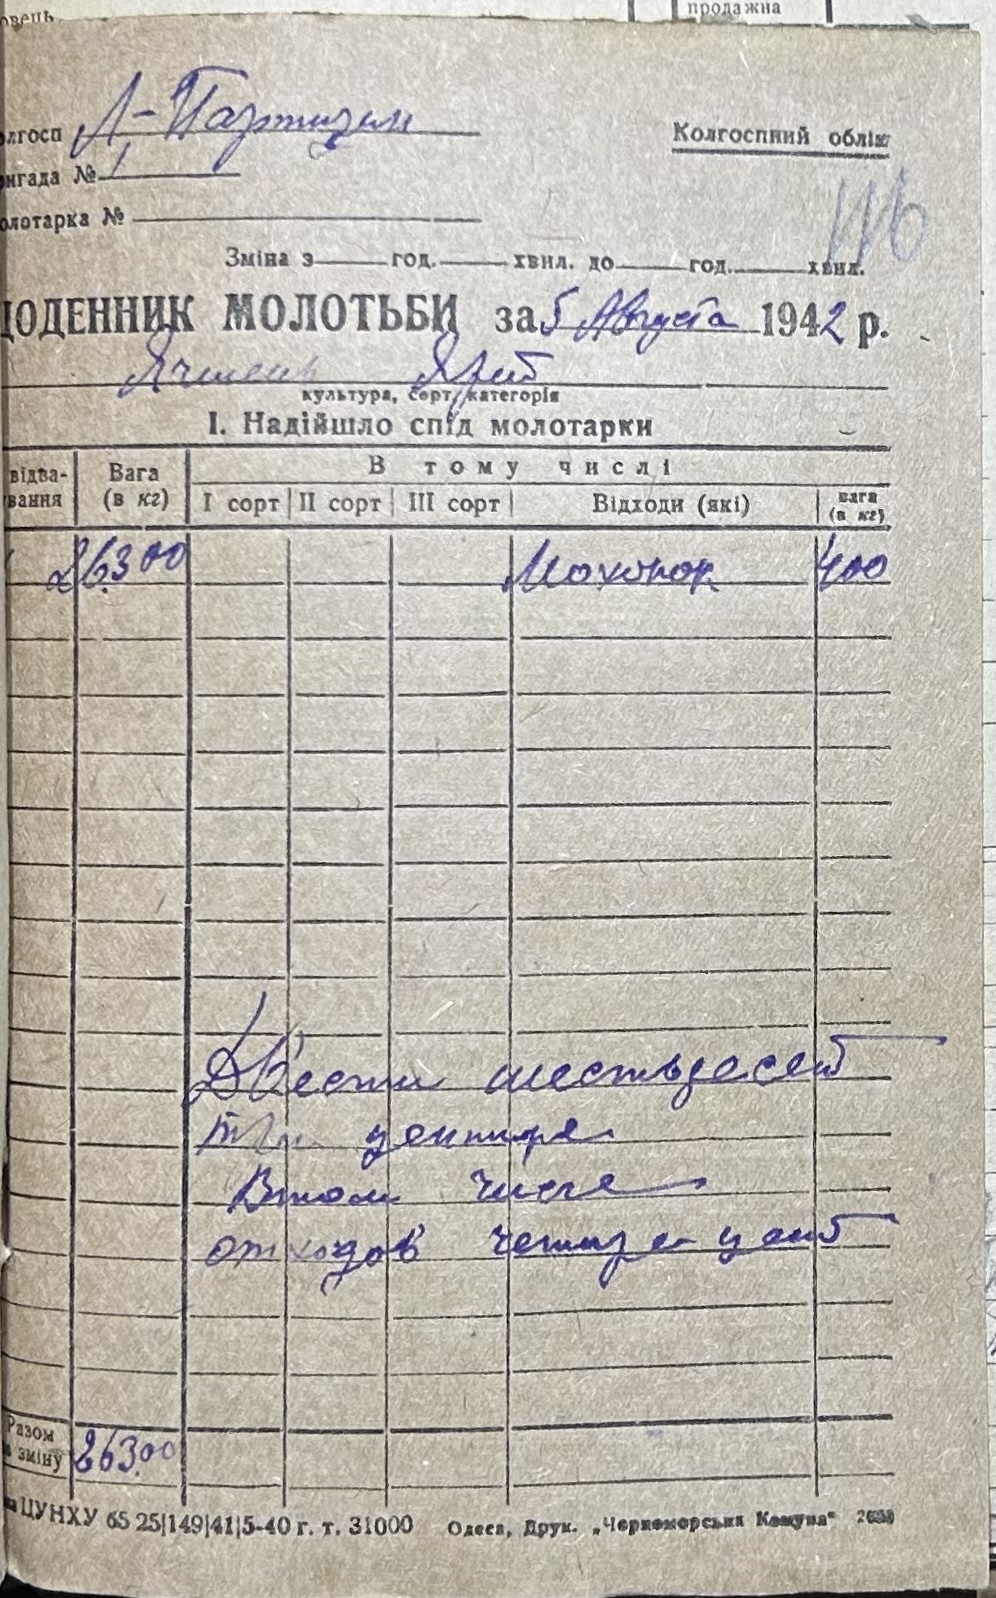 овець
продажна
олгосп Л-Партизан
Колгоспний облік
ригада № 1
116
олотарка №
Зміна з год. хвил. до год. хвил.
ЩОДЕННИК МОЛОТЬБИ за 5 Августа 1942 р.
Ячмень Ярий
культура, сорт, категорія
І. Надійшло спід молотарки
відва-
вання
Вага
(в кг)
В тому числі
I сорт II сорт III сорт Відходи (які) вага
(в кг)
26300 400
Двести шестьдесят
три центнера
Втом числе
отходов четыре цент
Разом
зміну 26300
ЦУНХУ 65 25|149|41|5-40 г. т. 31000 Одеса, Друк. „Чорноморська Комуна"